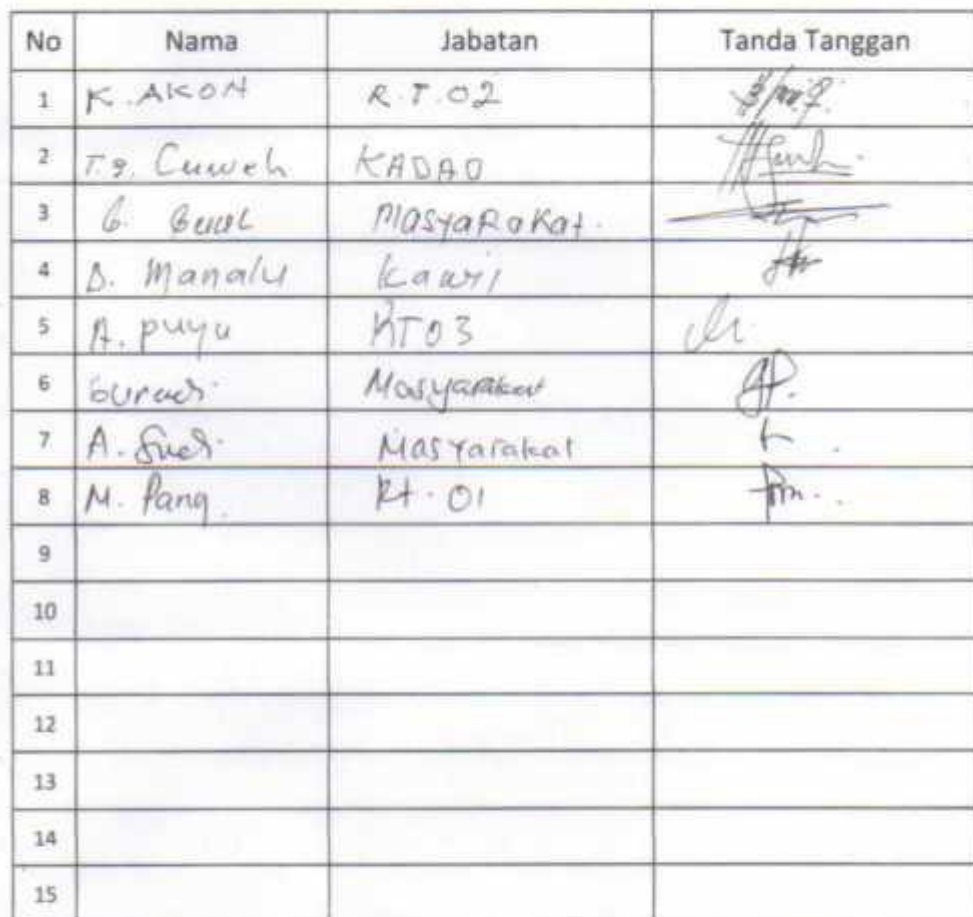 No Nama Jabatan Tanda Tanggan
1 K. AKON R.T.02
2 T.g. Cuweh KADAD
3 G. Masyarakat.
4 D. Manalu Kauri
5 A. Puyu RT03
6 Masyarakat
7 A. Masyarakat
8 M. Pang. Rt. 01
9
10
11
12
13
14
15